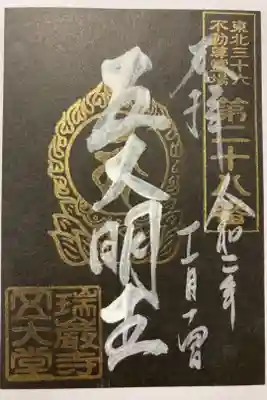 東北三十六
不動尊霊場
第二十八番
奉拝
令和二年
五大明王
瑞巌寺
五大堂